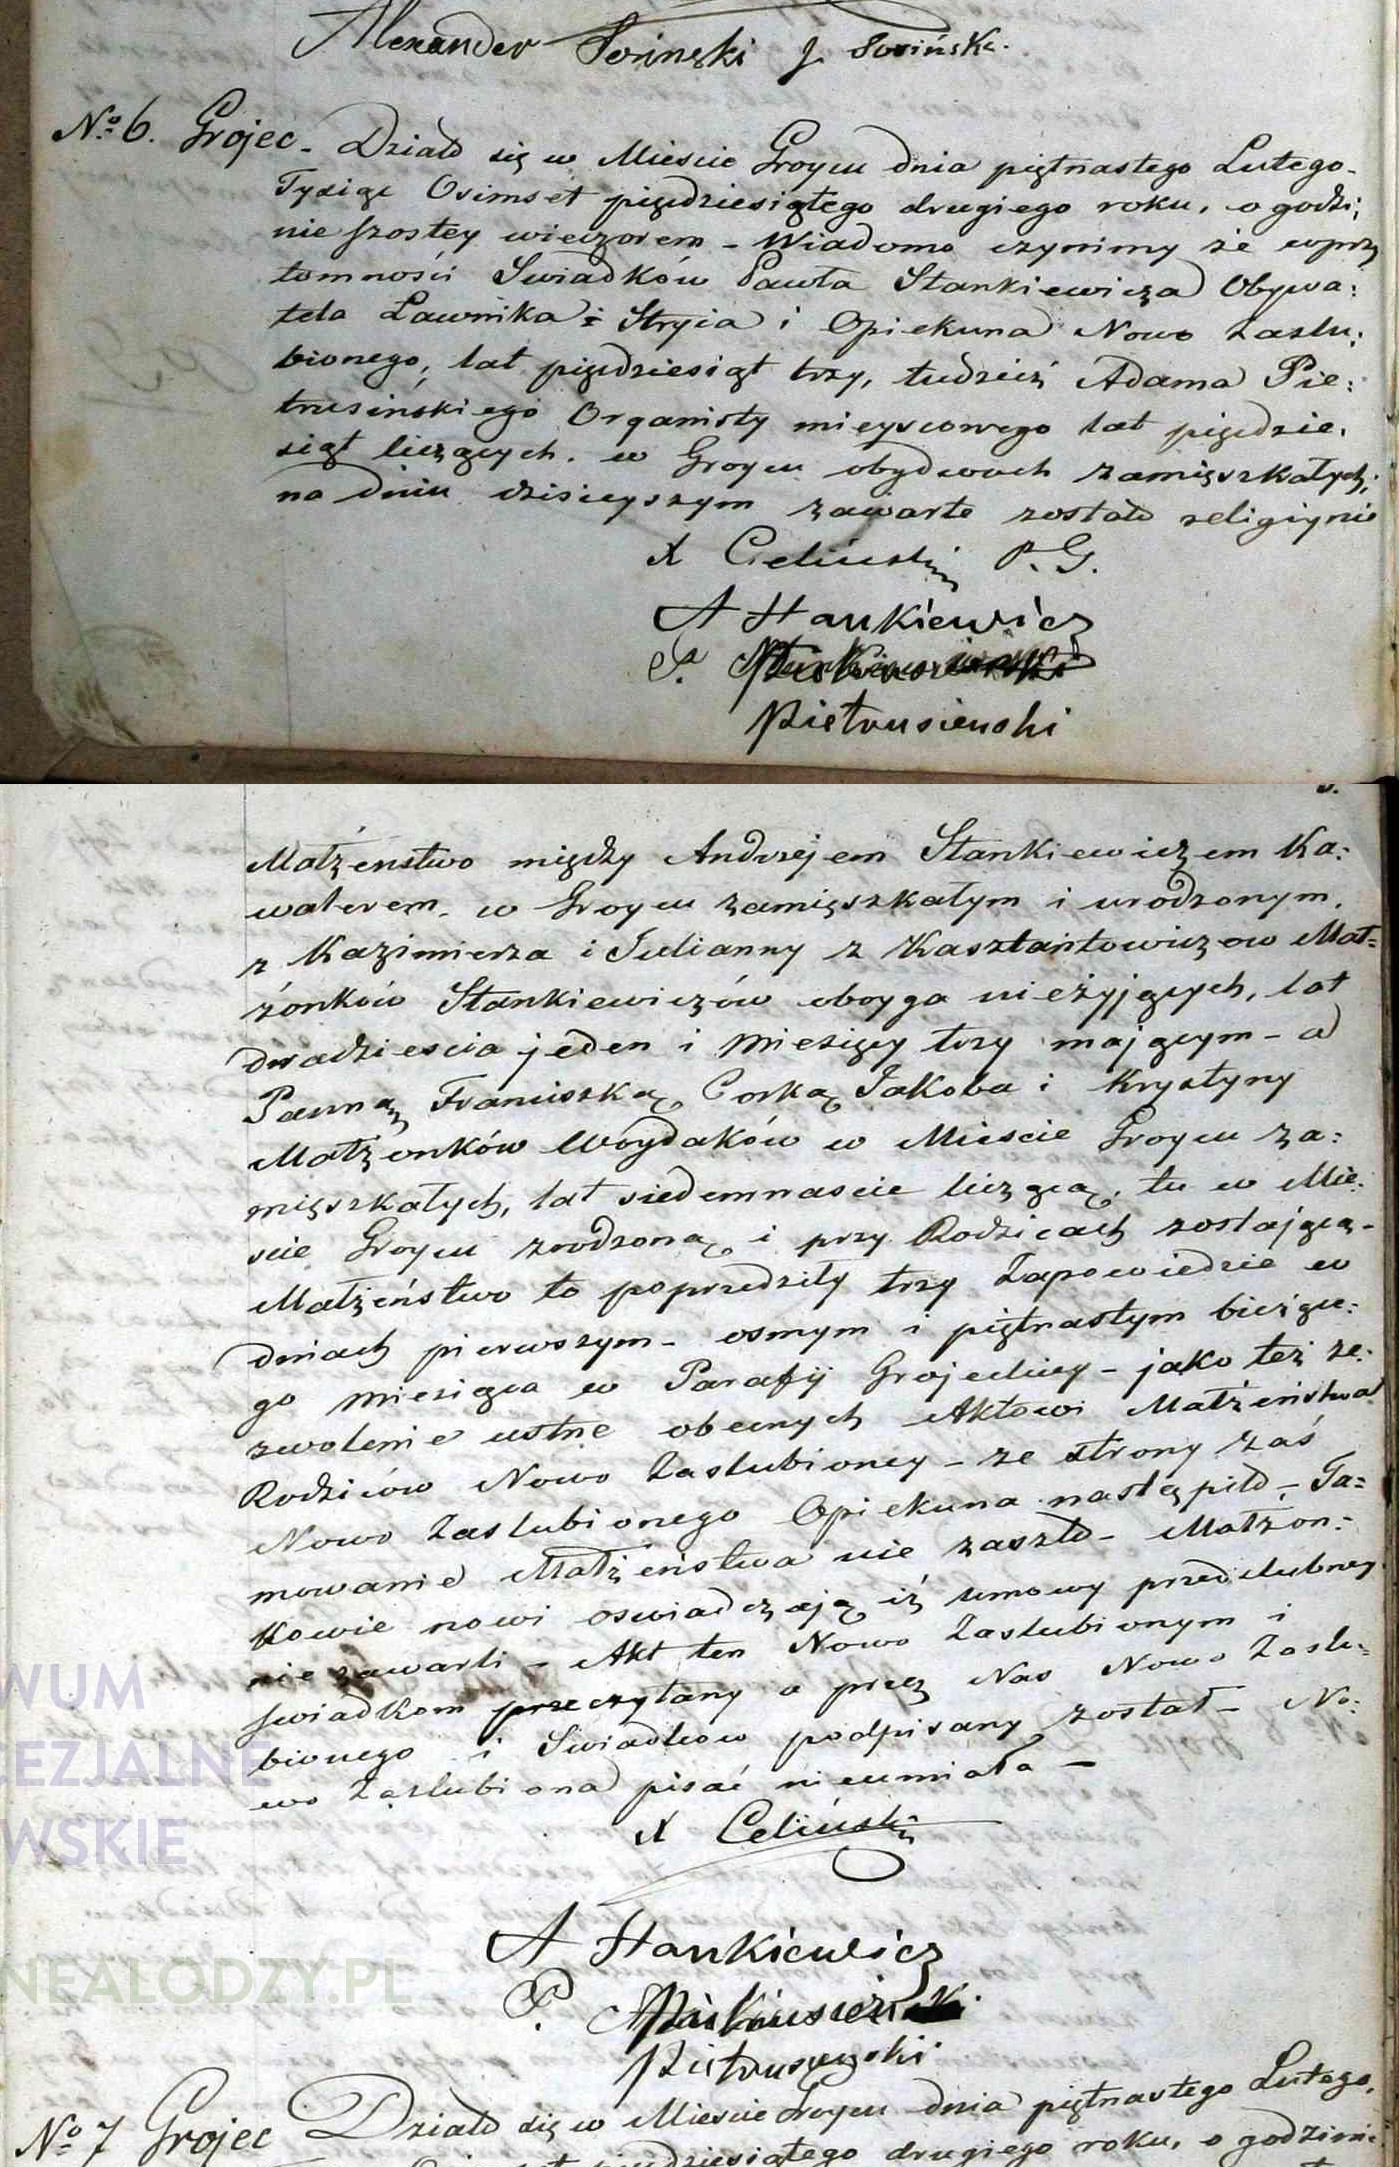 Alexander Sosinski J. Sosińsk.
No 6. Grojec - Działo się w Mieście Groycu dnia piętnastego Lutego -
Tysiąc Osimset piędziesiątego drugiego roku, o godzi;
nie szostey wieczorem - Wiadomo czynimy że wprzy
tomności Swiadków Pawła Stankiewicza Obywa:
tela Ławnika i Stryia i Opiekuna Nowo Zaslu:
bionego, lat pięćdziesiąt trzy, tudzież Adama Pie:
trusińskiego Organisty mieyscowego lat pięćdzie,
siąt liczących. w Groycu obydwóch zamięszkałych;
na dniu dzisieyszym zawarte zostało religiynie
X Celiński P. G.
A Stankiewicz
P.
Pietrusienski
Małżenstwo między Andrzejem Stankiewiczem Ka:
walerem. w Groycu zamięszkałym i urodzonym.
z Kazimierza i Julianny z Kasztantowiczow Mał=
żonków Stankiewiczów oboyga nieżyjących, lat
dwadziescia jeden i Miesięcy trzy mającym - a
Panną Franciszką Corką Jakoba i Krystyny
Małżonków Woydaków w Miescie Groycu za:
mięszkałych, lat siedemnascie liczącą, tu w Mie:
scie Groycu zrodzoną i przy Rodzicach zostającą -
Małżeństwo to poprzedziły trzy Zapowiedzie w
dniach pierwszym - osmym i piętnastym bieżące:
go Miesiąca w Parafij Grojeckiey - jako też ze:
zwolenie ustne obecnych Aktowi Małżeństwa
Rodziców Nowo Zaslubioney - ze strony zaś
Nowo Zaslubionego Opiekuna nastąpiło - Ta=
mowanie Małżeństwa nie zaszło - Małżon:
kowie nowi oswiadczają iż umowy przedslubney
nie zawarli - Akt ten Nowo Zaslubionym i
swiadkom przeczytany a przez Nas Nowo Zaslu=
bionego i Swiadków podpisany został - No:
wo Zaslubiona pisać nieumiała -
X Celiński
A Stankiewicz
P.
Pietruszynski
No 7 Grojec Działo się w Miescie Groycu dnia piętnastego Lutego,
pięćdziesiątego drugiego roku, o godzinie